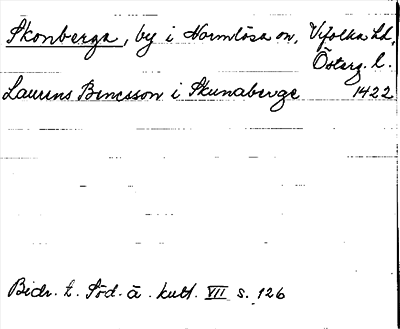 Skonberga, by i Normlösa sn, Vifolka hd,
Österg. l.
Laurens Bencsson i Skunaberge 1422
Bidr. t. Söd-a . kult. VII s. 126